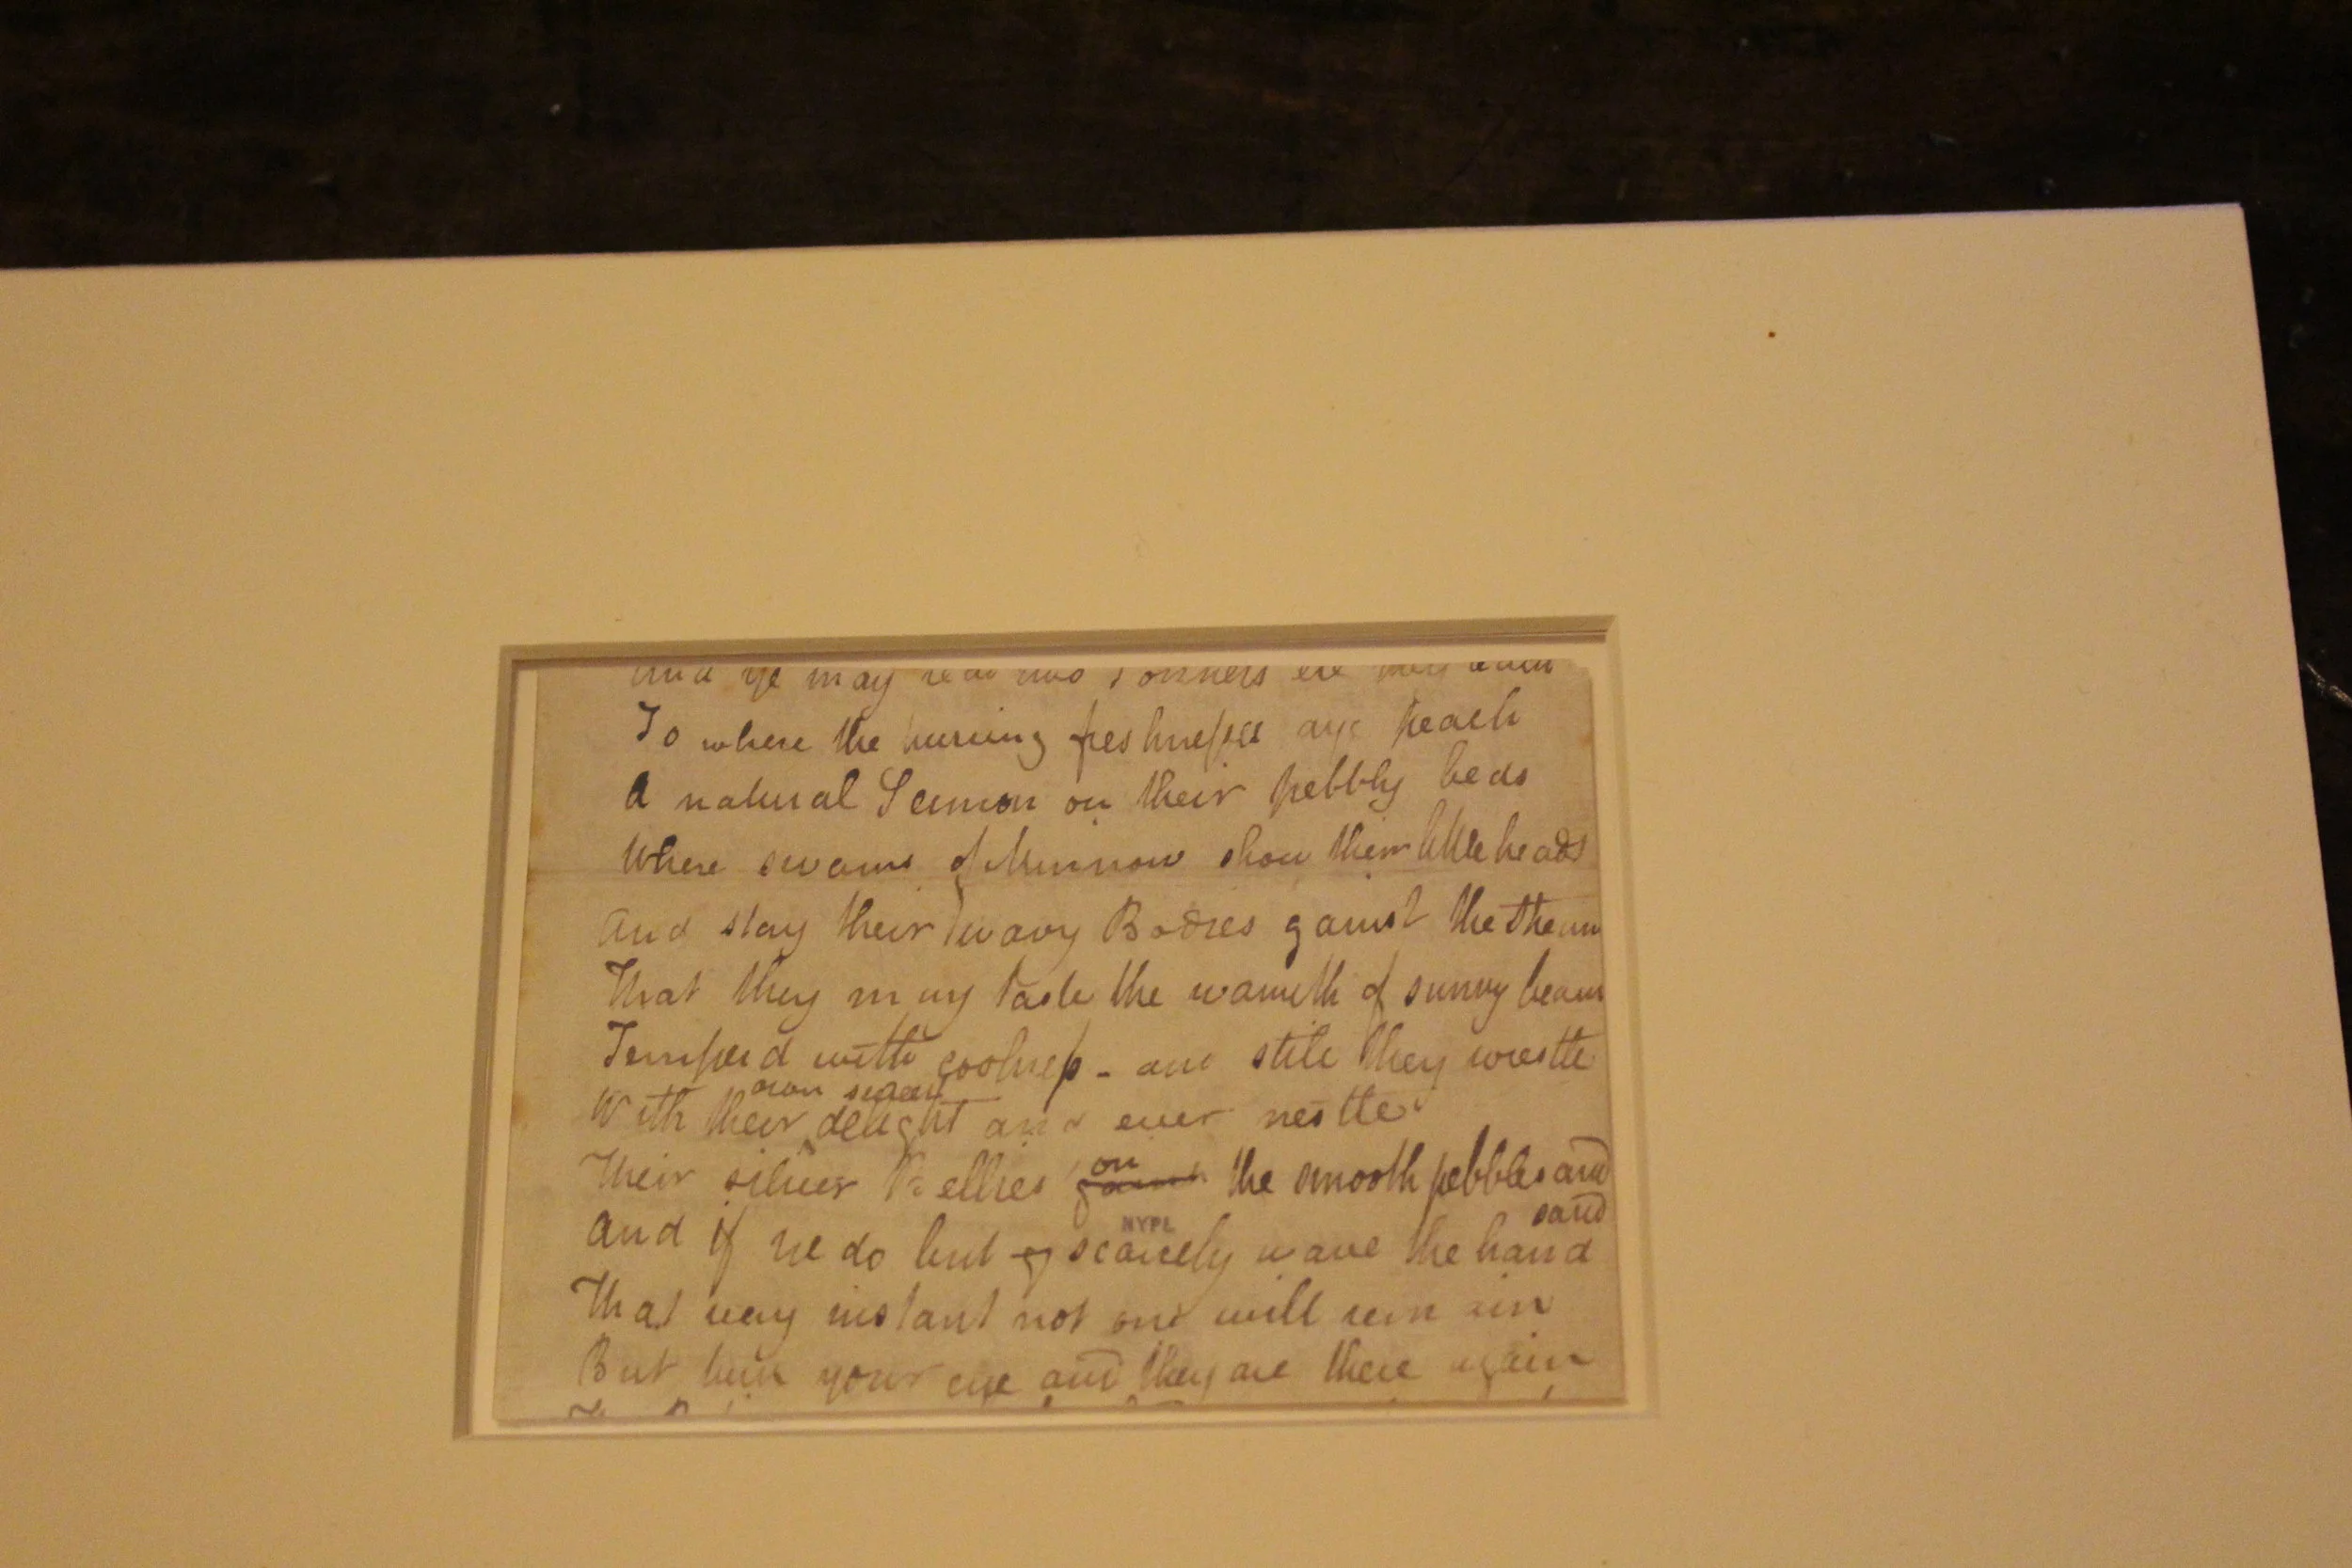 And ye may read two Sonnets ere they reach
To where the hurying freshnesses aye preach
A natural Sermon on their pebbly beds
Where swarms of Minnow show their little heads
And stay their wavy Bodies gainst the Stream
That they may taste the warmth of sunny beams
Temperd with coolness - and still they wrestle
own sweet
With their delight and ever nestle
on
Their silver Bellies gainst the smooth pebbles and
sand
NYPL
And if we do but scarcely wave the hand
That very instant not one will remain
But turn your eye and they are there again